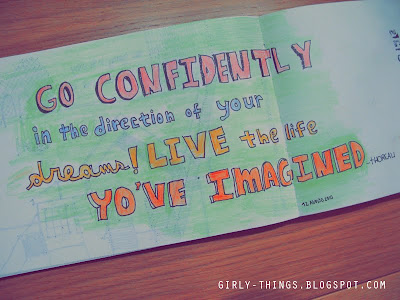 GO CONFIDENTLY
in the direction of your
dreams! LIVE the life
YO'VE IMAGINED
-THOREAU
GIRLY-THINGS.BLOGSPOT.COM